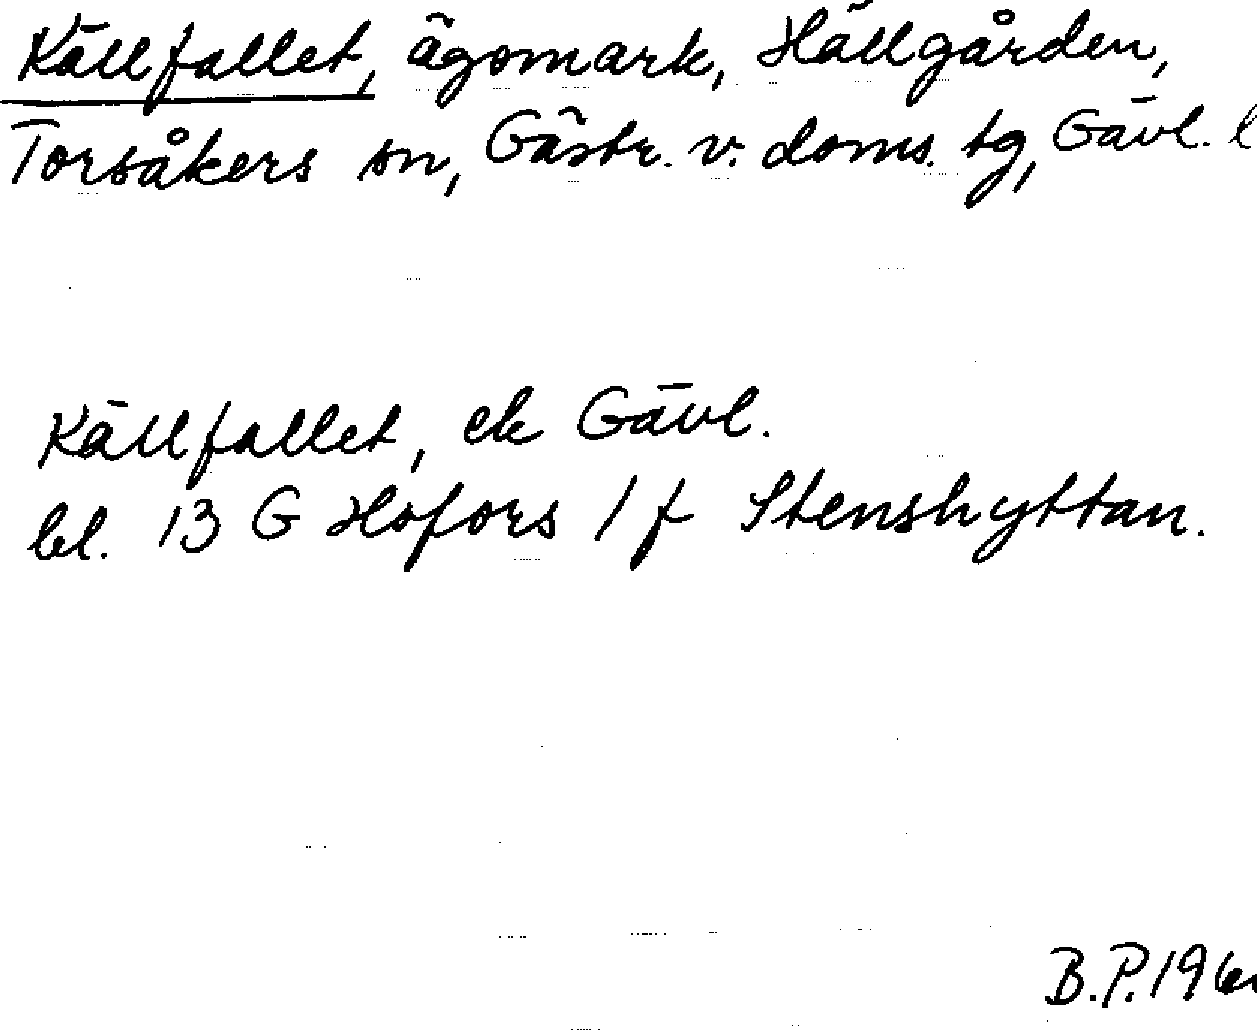 Källfallet, ägomark, Hällgården,
Torsåkers sn, Gästr. v. doms. tg, Gävl. l
Källfallet, ek Gävl.
bl. 13 G Hofors 1 f Stenshyttan.
B.P.196